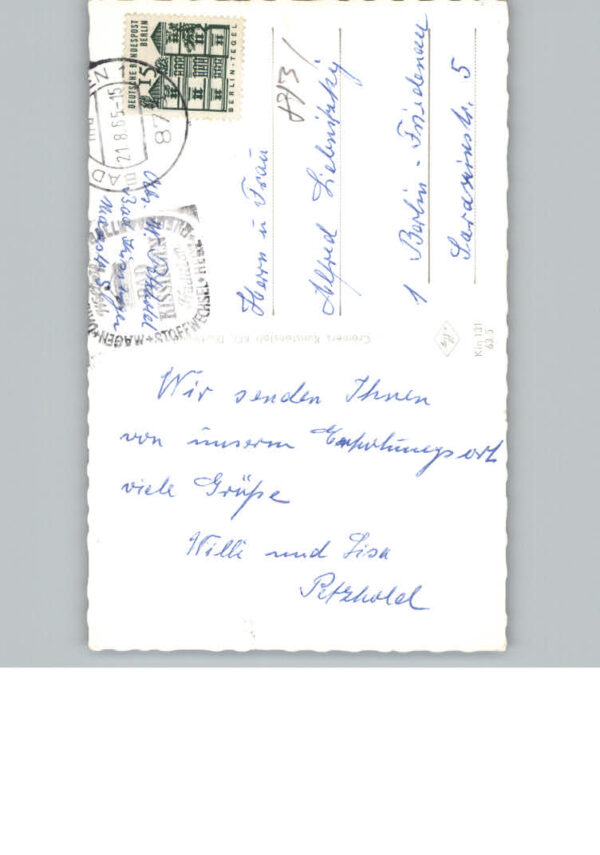 DEUTSCHE BUNDESPOST
BERLIN
15
BERLIN-TEGEL
21.8.65-15
87
BAD
BAD
KISSINGEN
MAGEN + STOFFWECHSEL + HERZ
Bad Kissingen
Herrn u Frau
Alfred Liebnitzky
1 Berlin - Friedenau
Sarazinstr. 5
Cramers Kunstanstalt KG,
Kin 131
63 5
Wir senden Ihnen
von unserm Erholungsort
viele Grüße
Willi und Lisa
Petzhold